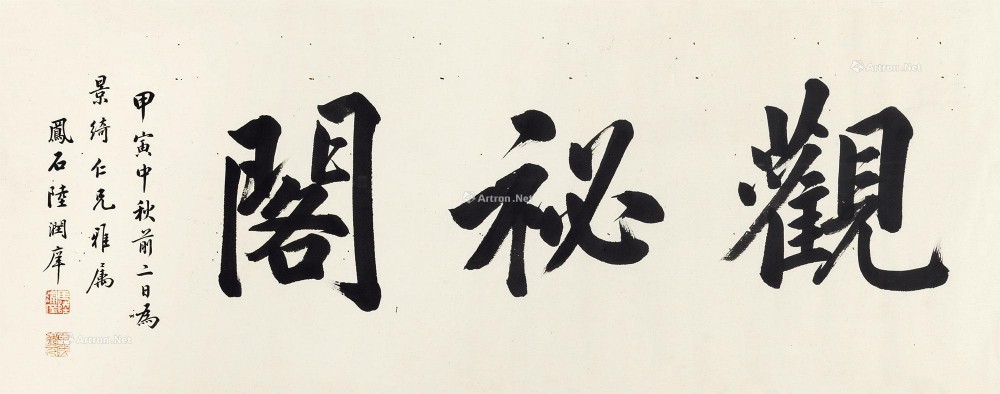 觀祕閣
甲寅中秋前二日為
景綺仁兄雅屬
鳳石陸潤庠
Artron.Net
Artron.Net
Artron.Net